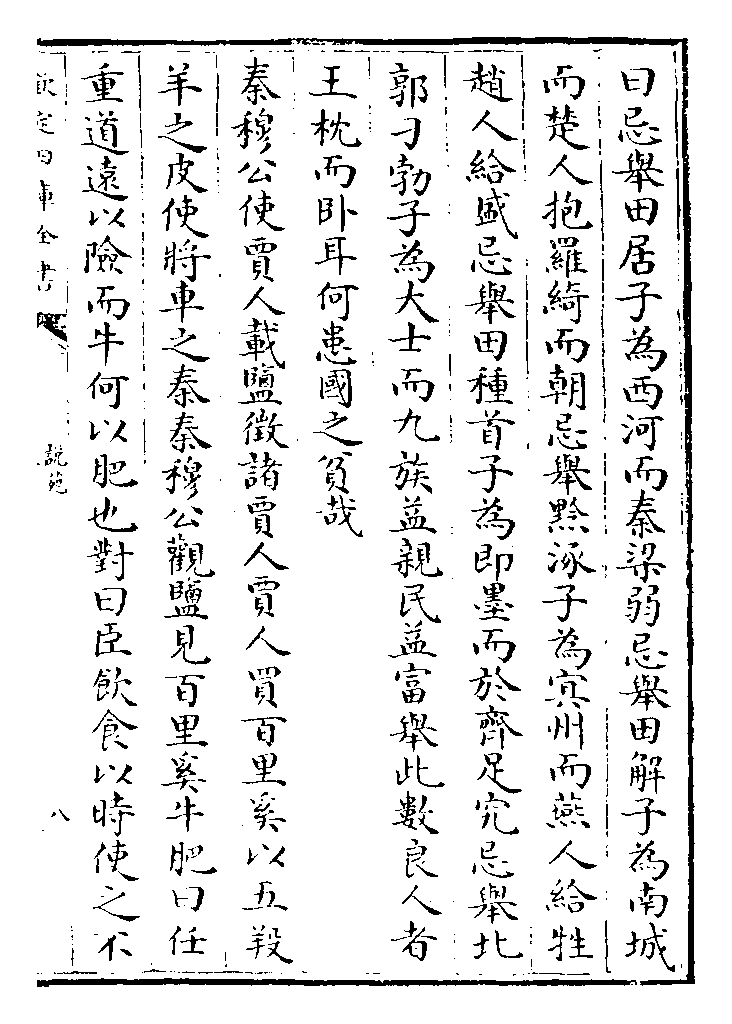 曰忌舉田居子為西河而秦梁弱忌舉田解子為南城
而楚人抱羅綺而朝忌舉黔涿子為㝠州而燕人給牲
趙人給盛忌舉田種首子為即墨而於齊足究忌舉北
郭刁勃子為大士而九族益親民益富舉此數良人者
王枕而卧耳何患國之貧哉
秦穆公使賈人載鹽徵諸賈人賈人買百里奚以五羖
羊之皮使將車之秦秦穆公觀鹽見百里奚牛肥曰任
重道遠以險而牛何以肥也對曰臣飲食以時使之不
欽定四庫全書
說苑
八